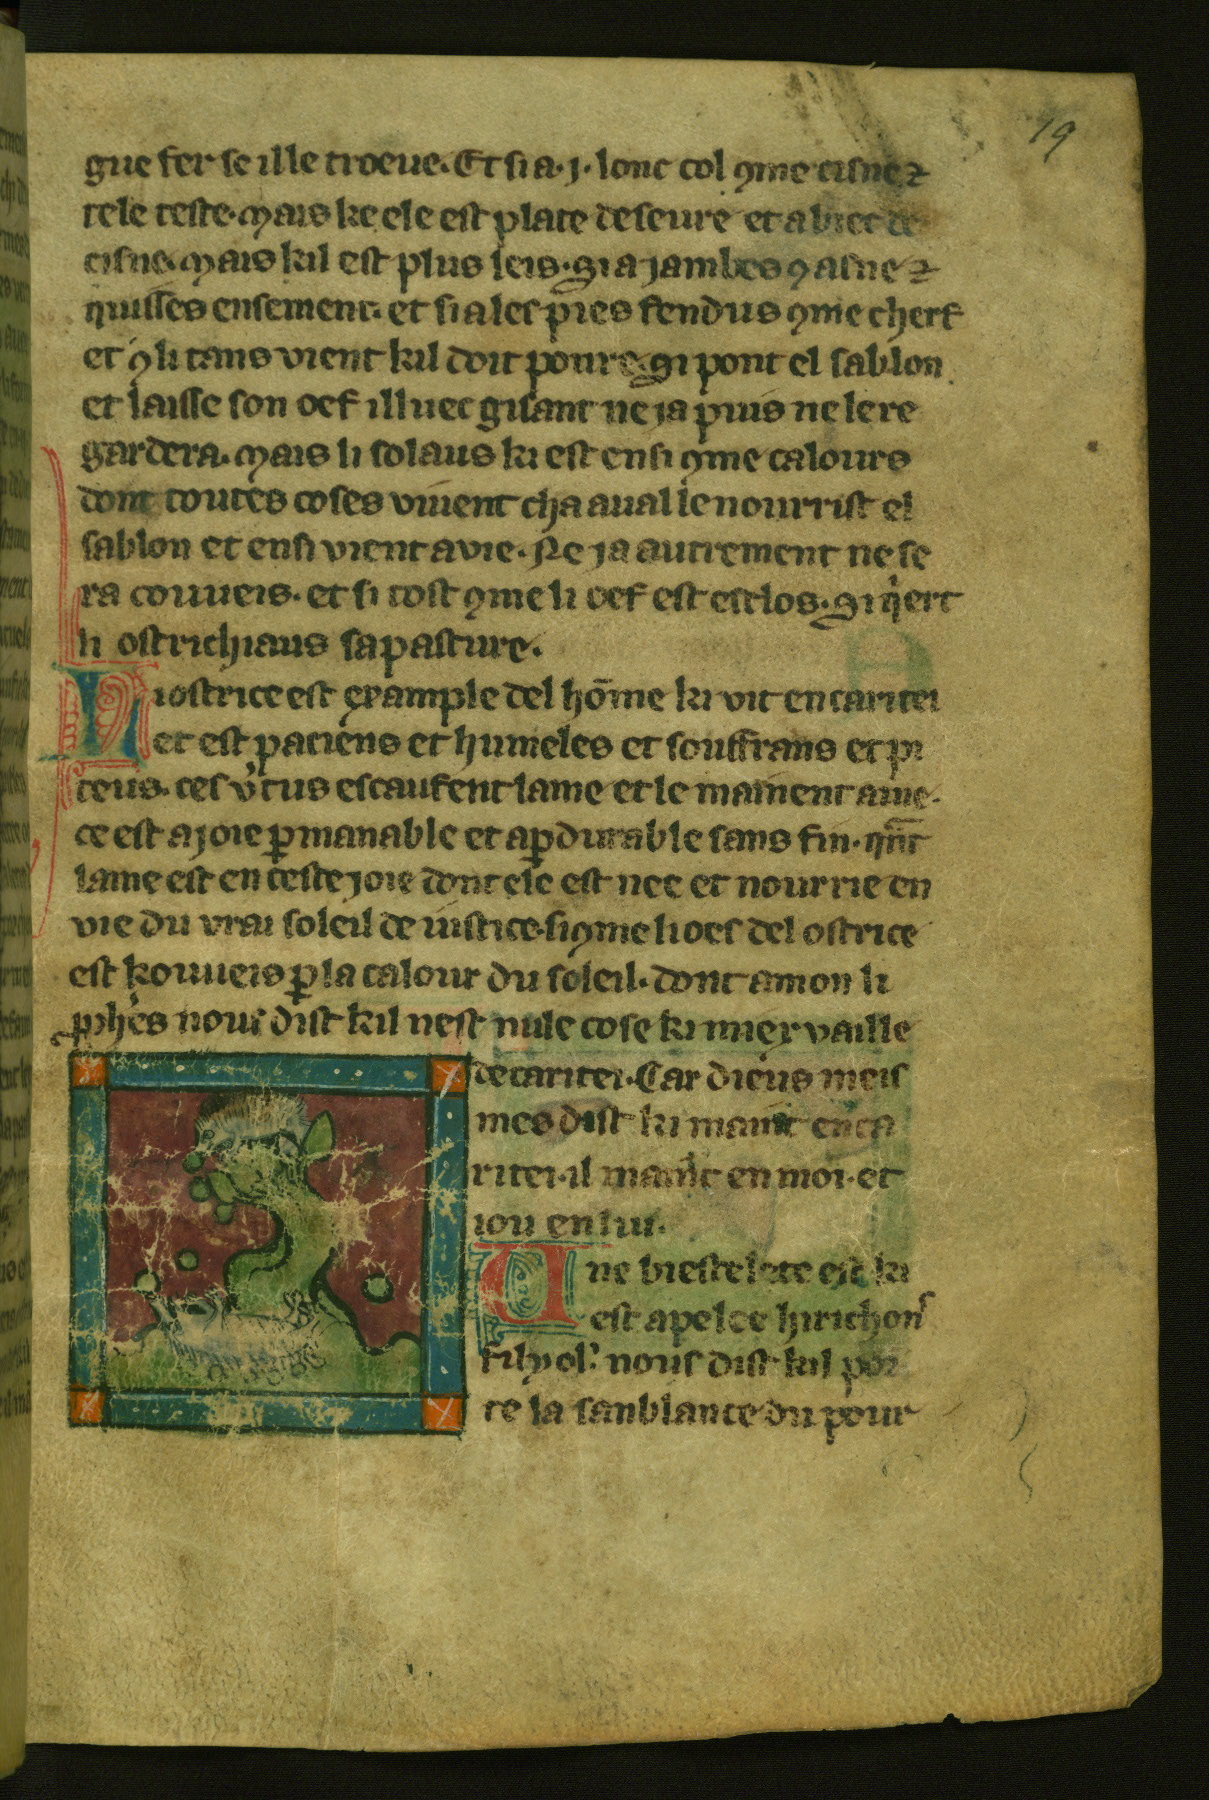 19
gue fer se ille troeue. Et si a .j. lonc col ꝯme cisne ⁊
tele teste. Mais ke ele est plate deseure et a biec de
cisne. Mais kil est plus leis. Si a jambes ꝯ asne ⁊
quisses ensement. et si a les pies fendus ꝯme cherf
et q̃ li tans vient kil doit ponre. Si pont el sablon
et laisse son oef illuec gisant ne ja puis ne le re
gardera. Mais li solaus ki est ensi ꝯme calours
dont toutes coses viuent cha aual le nourrist el
sablon et ensi vient a vie. Ne ja autrement ne se
ra couueis. et si tost ꝯme li oef est esclos. Si q̃ert
li ostrichiaus sa pasture.
Li ostrice est example del hõme ki vit en caritei
et est paciens et humeles et souffrans et pi
teus. ces v̾tus escaufent lame et le mainent a
ce est a joie ꝑmanable et aꝑdurable sans fin. qñt
lame est en ceste joie dont ele est nee et nourrie en
vie du vrai soleil de iustice. si ꝯme li oes del ostrice
est kouueis ꝑ la calour du soleil. dont amon li
ꝓphes nous dist kil nest nule cose ki miex vaille
de caritei. Car dieus meis
mes dist ki maint en ca
ritei. il maint en moi. et
iou en lui.
Une biestelete est ki
est apelee hirichons
fisyol᾽ nous dist kil por
te la sanblance du pour